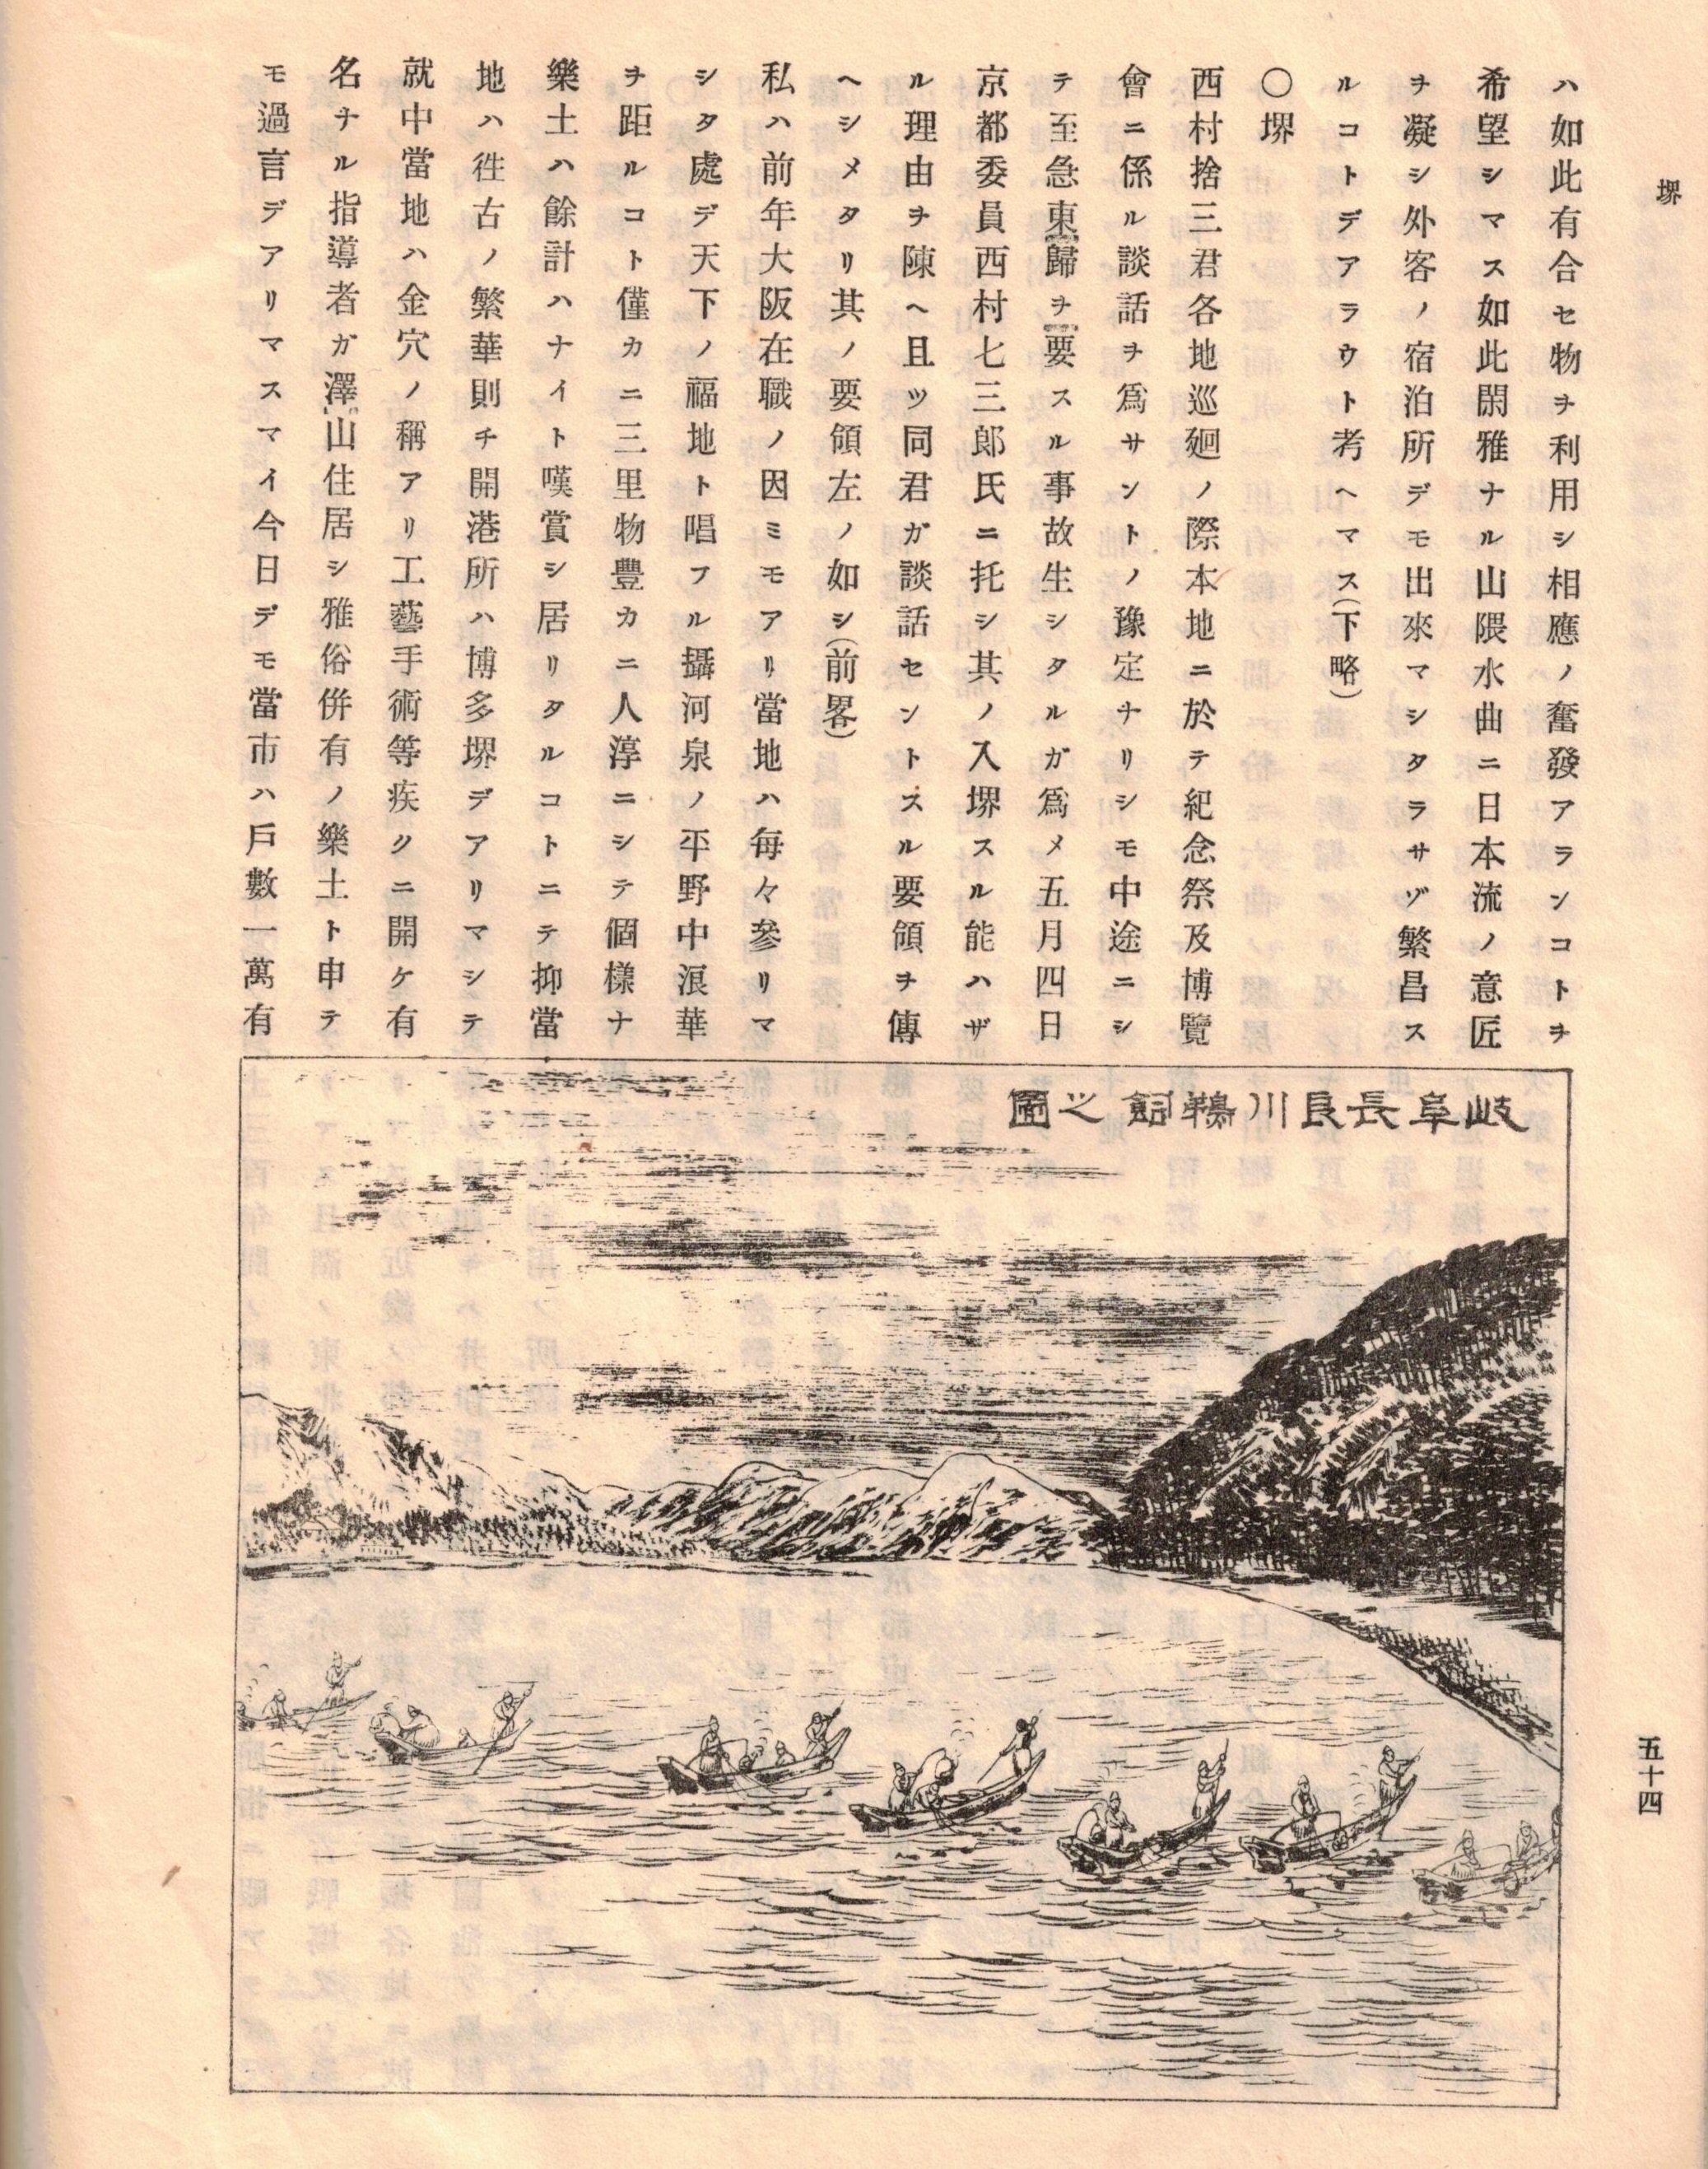 堺
ハ如此有合セ物ヲ利用シ相應ノ奮發アランコトヲ
希望シマス如此閑雅ナル山隈水曲ニ日本流ノ意匠
ヲ凝シ外客ノ宿泊所デモ出來マシタラサゾ繁昌ス
ルコトデアラウト考ヘマス(下略)
〇堺
西村捨三君各地巡廻ノ際本地ニ於テ紀念祭及博覽
會ニ係ル談話ヲ爲サントノ豫定ナリシモ中途ニシ
テ至急東歸ヲ要スル事故生シタルガ爲メ五月四日
京都委員西村七三郎氏ニ托シ其ノ入堺スル能ハザ
ル理由ヲ陳ヘ且ツ同君ガ談話セントスル要領ヲ傳
ヘシメタリ其ノ要領左ノ如シ(前畧)
私ハ前年大阪在職ノ因ミモアリ當地ハ毎々參リマ
シタ處デ天下ノ福地ト唱フル攝河泉ノ平野中浪華
ヲ距ルコト僅カニ三里物豐カニ人淳ニシテ個樣ナ
樂土ハ餘計ハナイト嘆賞シ居リタルコトニテ抑當
地ハ徃古ノ繁華則チ開港所ハ博多堺デアリマシテ
就中當地ハ金穴ノ稱アリ工藝手術等疾クニ開ケ有
名ナル指導者ガ澤山住居シ雅俗併有ノ樂土ト申テ
モ過言デアリマスマイ今日デモ當市ハ戶數一萬有
岐阜長良川鵜飼之圖
五十四